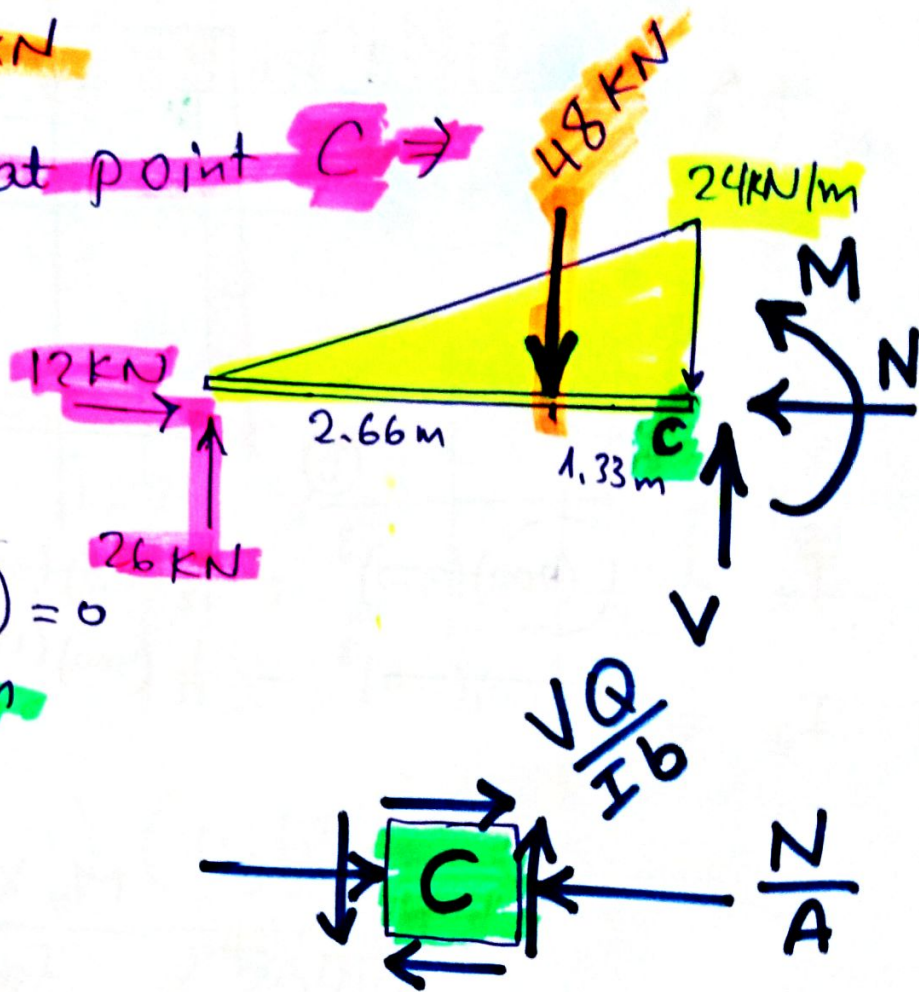 KN
at point C ⇒
48 KN
24KN/m
M
N
12 KN
2.66m
C
1.33m
26 KN
V
) = 0
VQ/Ib
C
N/A